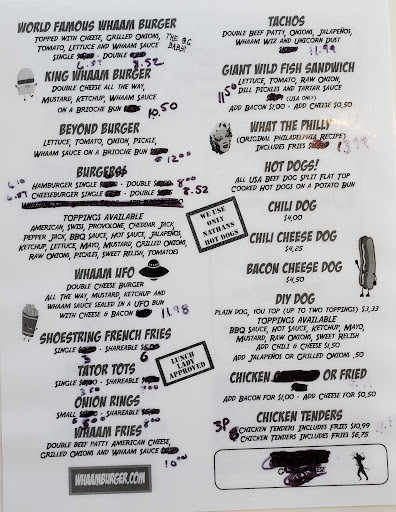 WORLD FAMOUS WHAAM BURGER
TOPPED WITH CHEESE, GRILLED ONIONS,
TOMATO, LETTUCE AND WHAAM SAUCE
THE BIG
BABE!
SINGLE - DOUBLE
8.52
KING WHAAM BURGER
DOUBLE CHEESE ALL THE WAY,
MUSTARD, KETCHUP, WHAAM SAUCE
ON A BRIOCHE BUN
10.50
BEYOND BURGER
LETTUCE, TOMATO, ONION, PICKLE,
WHAAM SAUCE ON A BRIOCHE BUN
12.00
BURGERS
HAMBURGER SINGLE - DOUBLE 8.00
CHEESEBURGER SINGLE - DOUBLE 8.52
TOPPINGS AVAILABLE
AMERICAN, SWISS, PROVOLONE, CHEDDAR JACK
PEPPER JACK, BBQ SAUCE, HOT SAUCE, JALAPEÑOS,
KETCHUP, LETTUCE, MAYO, MUSTARD, GRILLED ONIONS,
RAW ONIONS, PICKLES, SWEET RELISH, TOMATOES
WHAAM UFO
DOUBLE CHEESE BURGER
ALL THE WAY, MUSTARD, KETCHUP AND
WHAAM SAUCE SEALED IN A UFO BUN
WITH CHEESE & BACON 11.98
SHOESTRING FRENCH FRIES
SINGLE - SHAREABLE
3 6
TATOR TOTS
SINGLE - SHAREABLE
ONION RINGS
SMALL - SHAREABLE
8.00
WHAAM FRIES
DOUBLE BEEF PATTY AMERICAN CHEESE,
GRILLED ONIONS AND WHAAM SAUCE
10.00
WHAAMBURGER.COM
WE USE
ONLY
NATHANS
HOT DOGS
LUNCH
LADY
APPROVED
TACHOS
DOUBLE BEEF PATTY, ONION, JALAPEÑOS,
WHAAM WIZ AND UNICORN DUST
11.99
GIANT WILD FISH SANDWICH
LETTUCE, TOMATO, RAW ONION,
DILL PICKLES AND TARTAR SAUCE
11.50
(USA ONLY)
ADD BACON $1.00 - ADD CHEESE $0.50
WHAT THE PHILLY
(ORIGINAL PHILADELPHIA RECIPE)
INCLUDES FRIES
HOT DOGS!
ALL USA BEEF DOG SPLIT FLAT TOP
COOKED HOT DOGS ON A POTATO BUN
CHILI DOG
$4.00
CHILI CHEESE DOG
$4.25
BACON CHEESE DOG
$4.50
DIY DOG
PLAIN DOG, YOU TOP (UP TO TWO TOPPINGS) $3.33
TOPPINGS AVAILABLE
BBQ SAUCE, HOT SAUCE, KETCHUP, MAYO,
MUSTARD, RAW ONIONS, SWEET RELISH
ADD CHILI & CHEESE $1.50
ADD JALAPEÑOS OR GRILLED ONIONS .50
CHICKEN OR FRIED
ADD BACON FOR $1.00 - ADD CHEESE FOR $0.50
CHICKEN TENDERS
3P
CHICKEN TENDERS INCLUDES FRIES $10.99
CHICKEN TENDERS INCLUDES FRIES $6.75